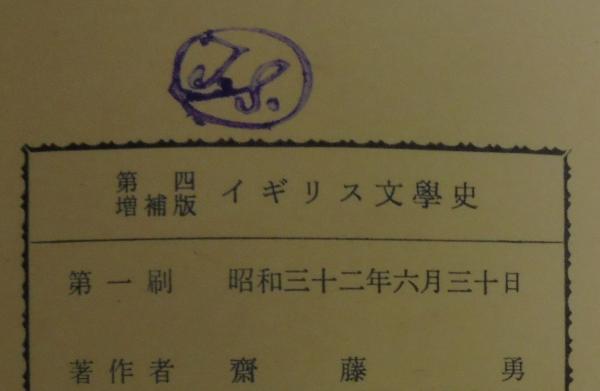 T.S.
第四
増補版 イギリス文學史
第一刷 昭和三十二年六月三十日
著作者 齋藤勇